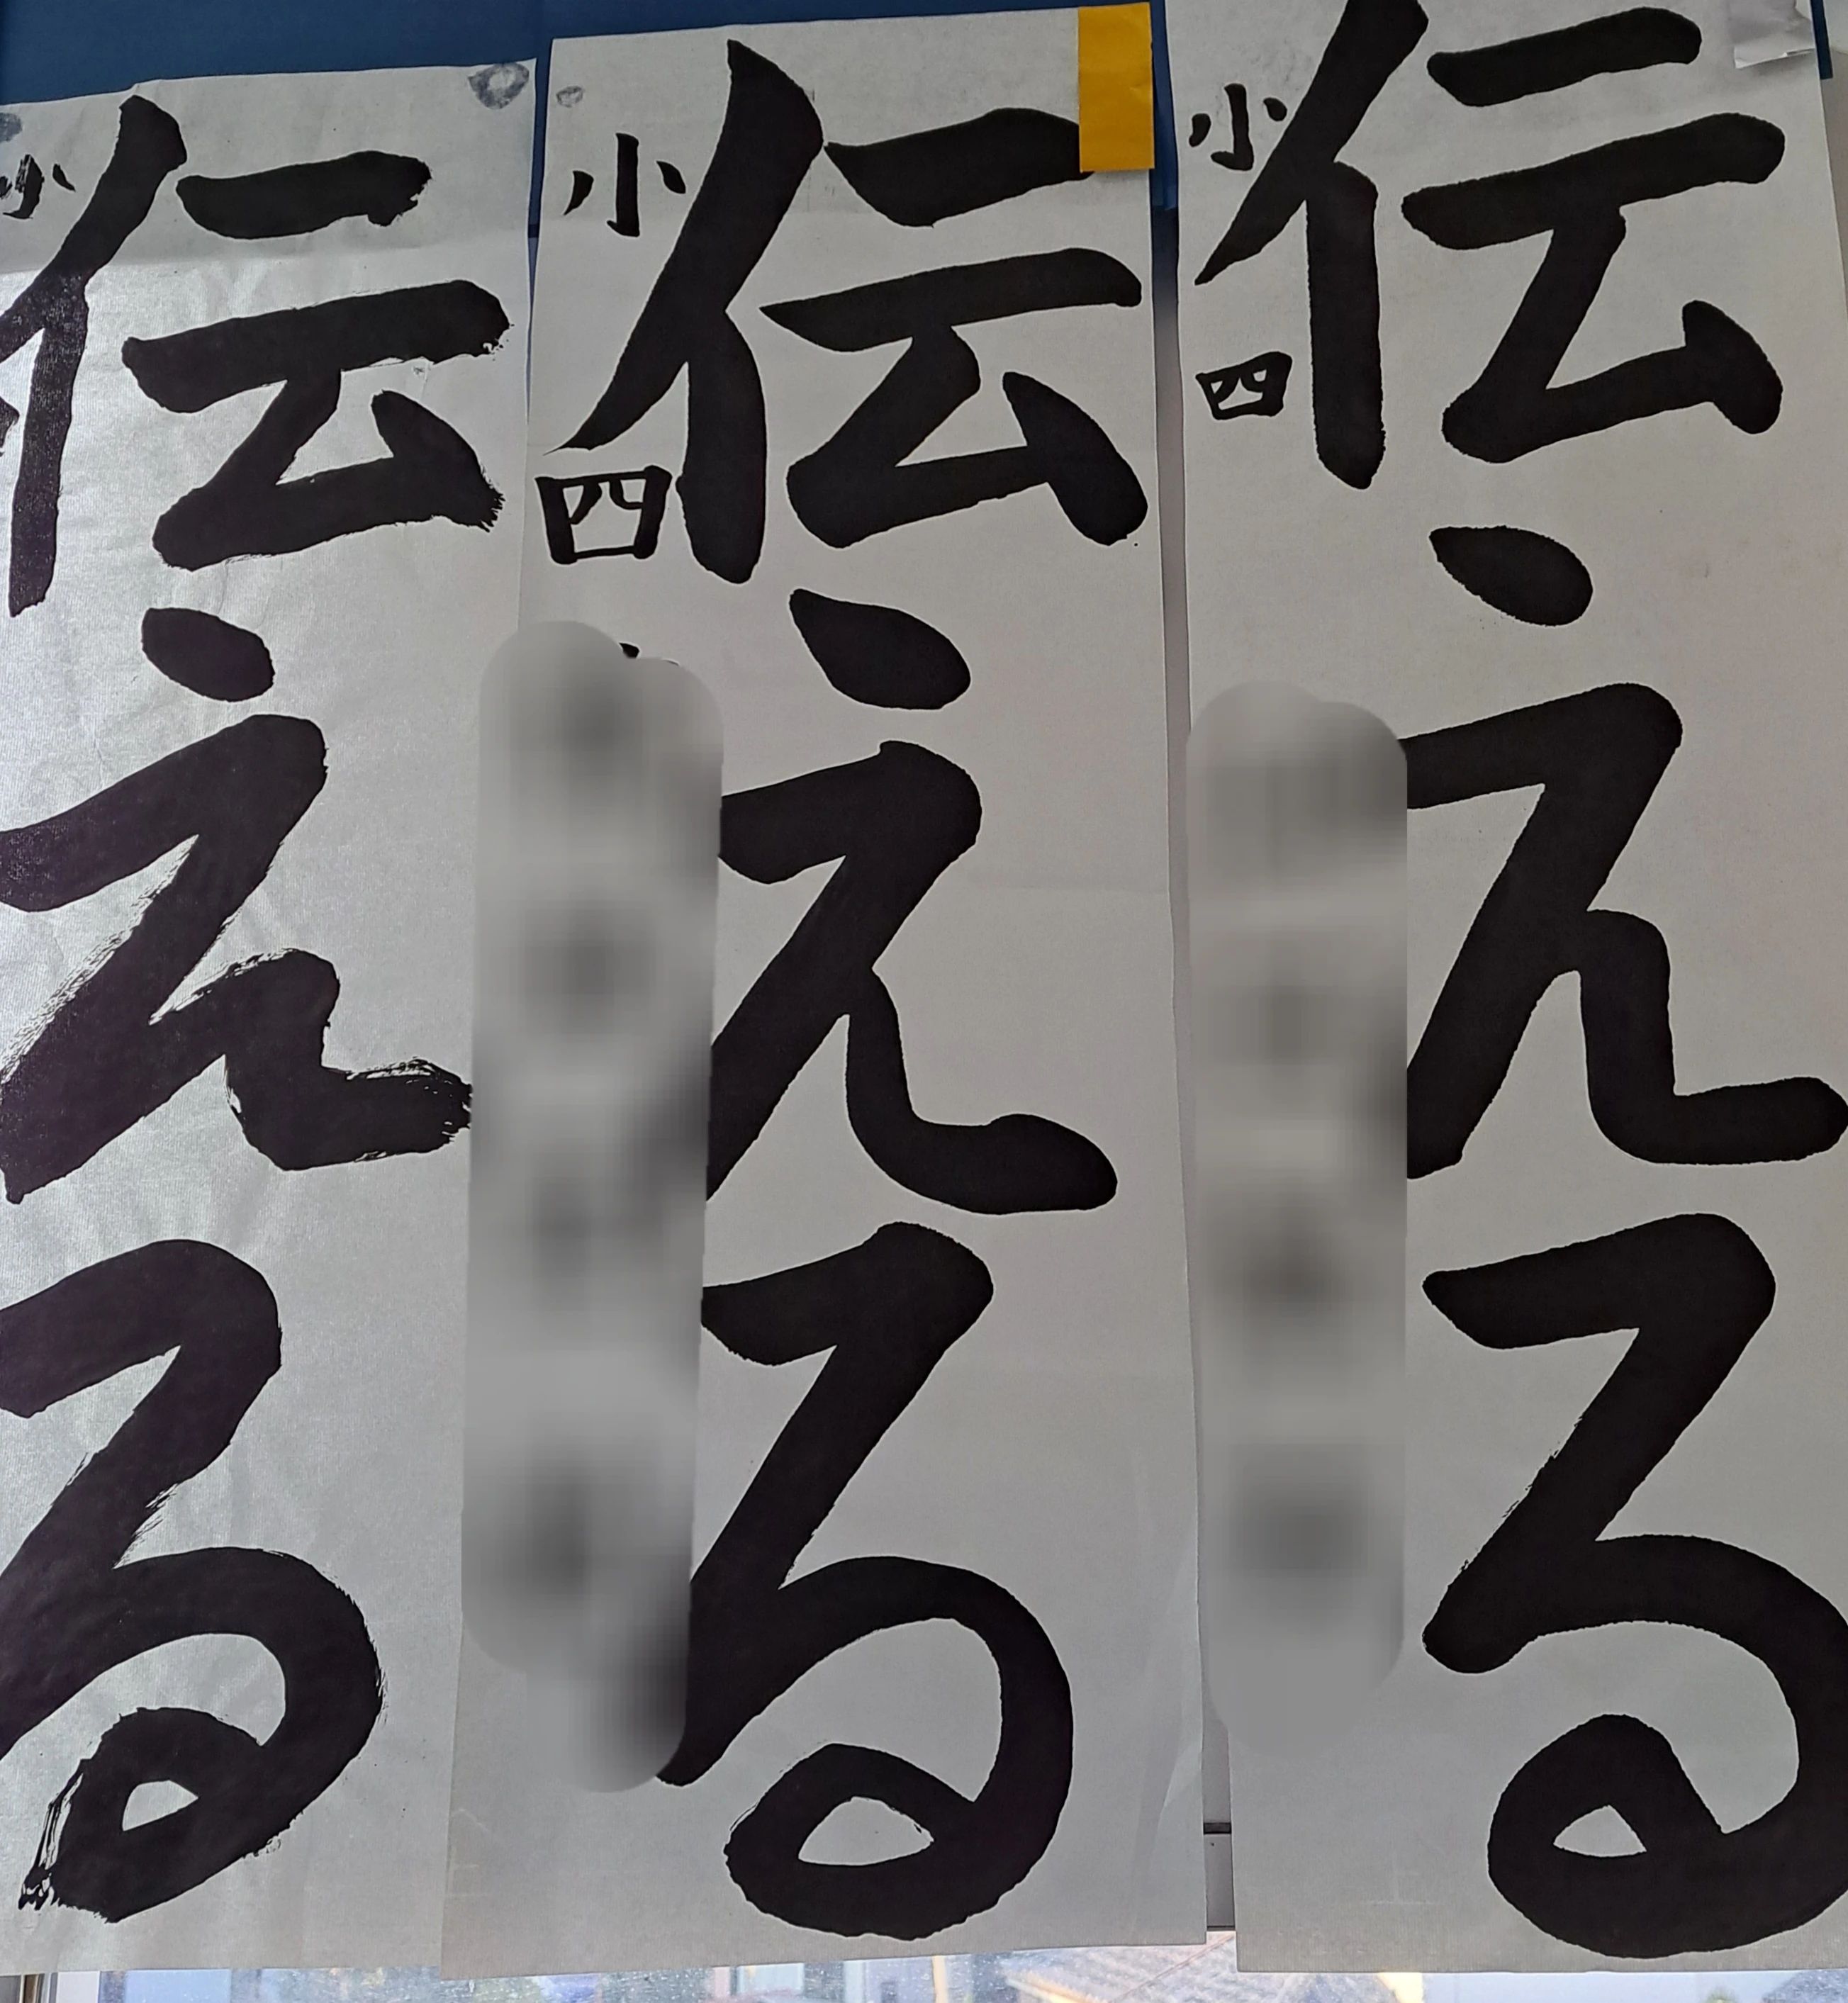 伝える
小四
伝える
小四
伝える
小